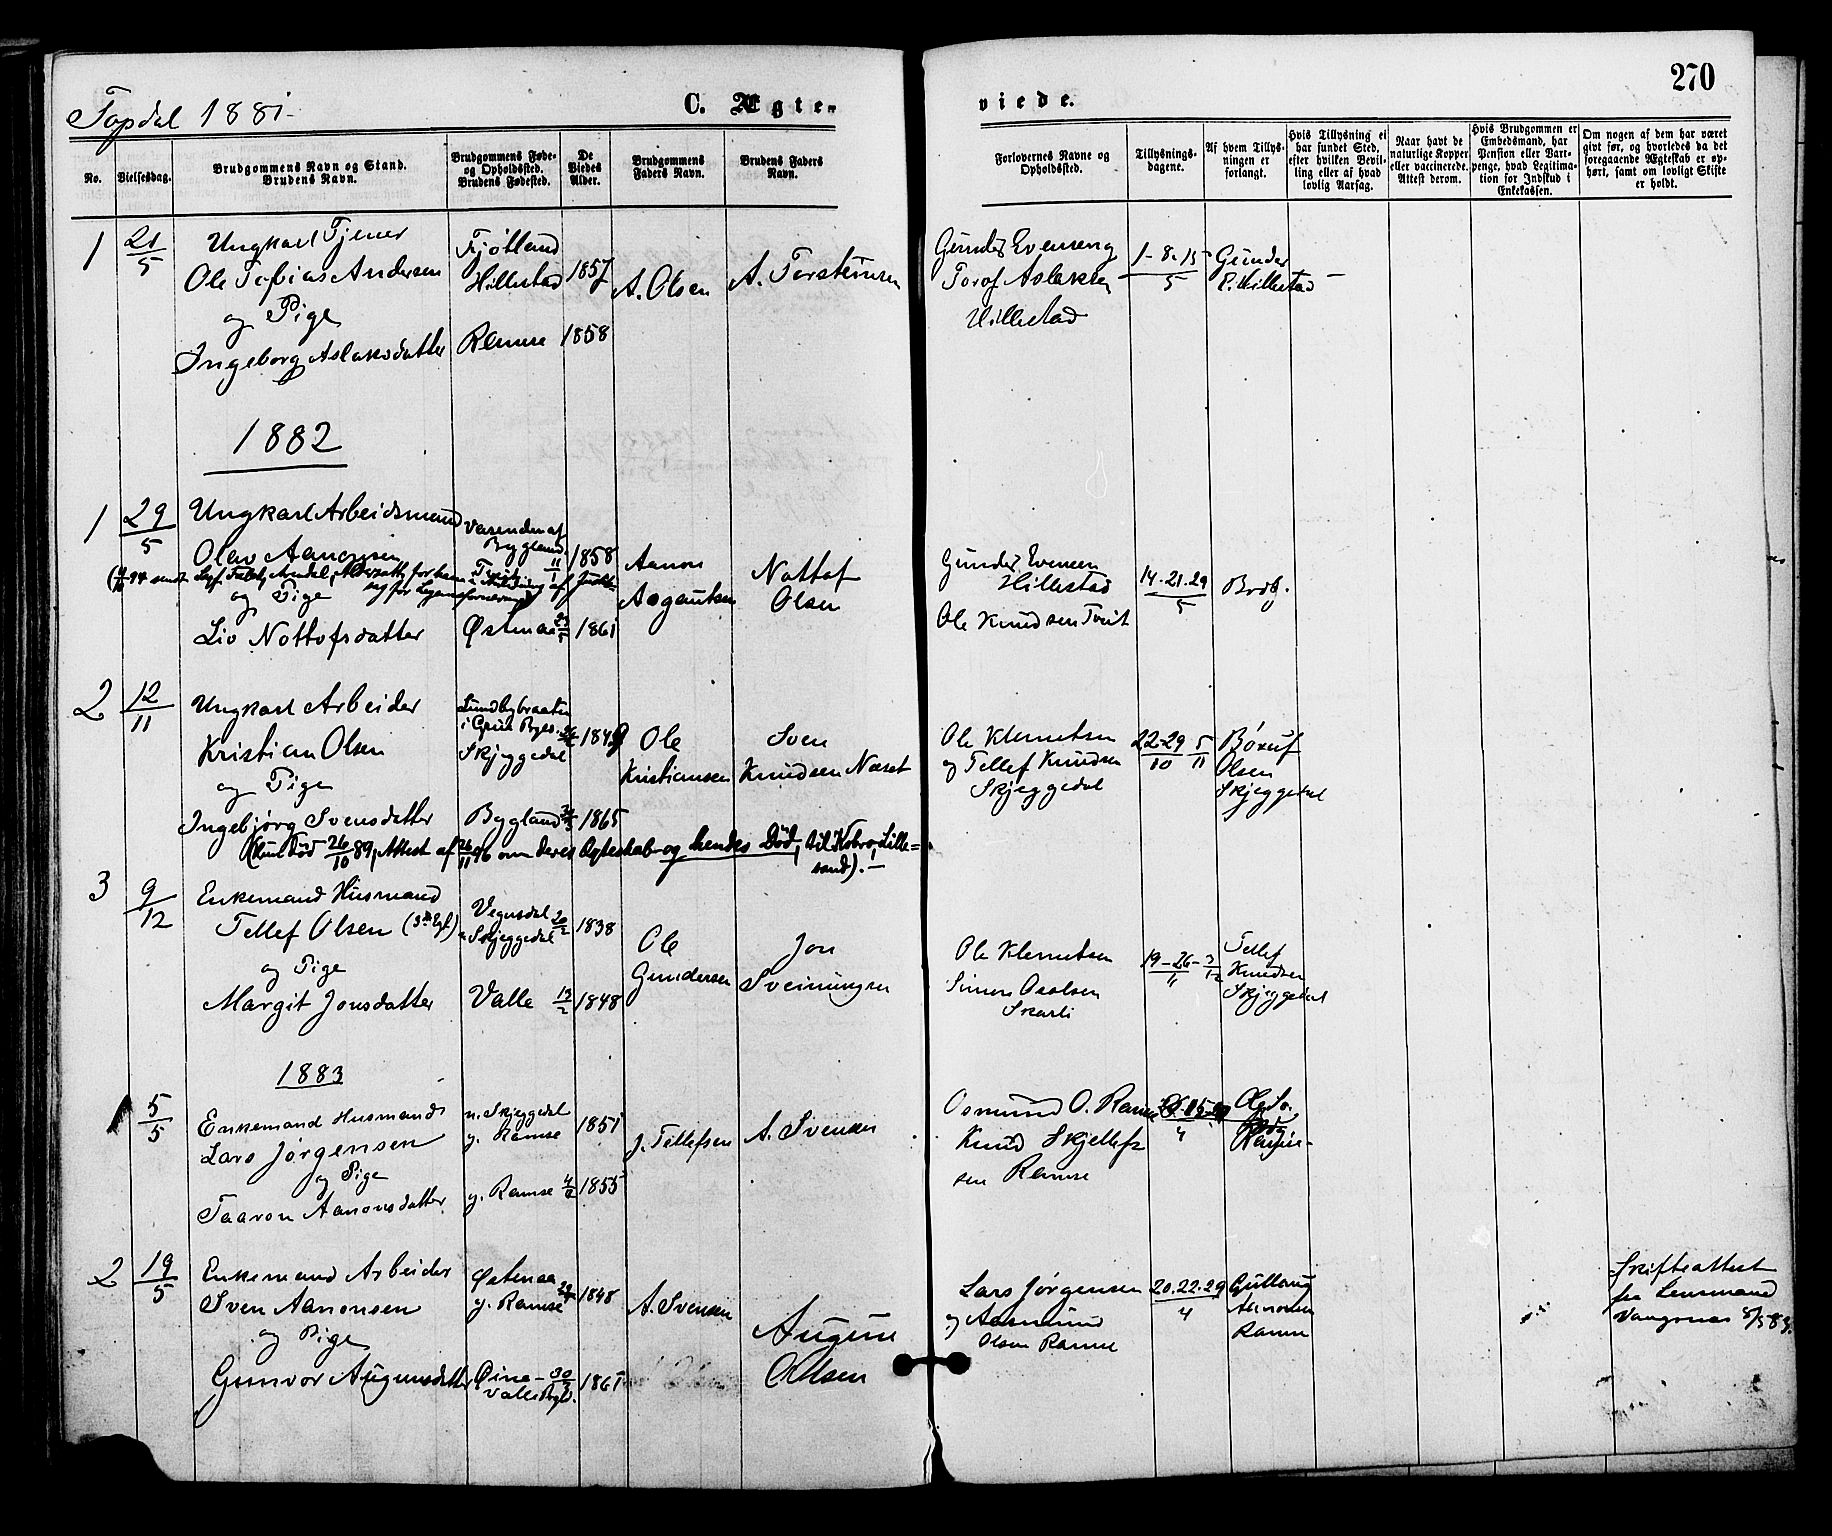 270
Topdal 1881
C. Ægte-
viede.
No.
Vielsesdag.
Brudgommens Navn og Stand.
Brudens Navn.
Brudgommens Føde- og Opholdssted.
Brudens Fødested.
De Viedes Alder.
Brudgommens Faders Navn.
Brudens Faders Navn.
Forlovernes Navne og Opholdssted.
Tillysnings-dagene.
Af hvem Tillys-ningen er forlangt.
Hvis Tillysning ei har fundet Sted, efter hvilken Bevil-ling eller af hvad lovlig Aarsag.
Naar havt de naturlige Kopper eller vaccinerede. Attest derom.
Hvis Brudgommen er Embedsmand, har Pension eller Vart-penge, hvad Legitima-tion for Indskud i Enkekassen.
Om nogen af dem har været givt før, og hvorledes da det foregaaende Ægteskab er op-hørt, samt om lovligt Skifte er holdt.
1 21/5 Ungkarl Tjener
Ole Tobias Andersen
og Pige
Ingeborg Aslaksdatter
Fjotland
Hillestad 1857
Ramse 1858
A. Olsen
A. Torsteinsen
Gunder Evensen
Torof Aslaksen
Hillestad
1-8-15/5
Gunder
E. Hillestad
1882
1 29/5 Ungkarl Arbeidsmand
Olav Aanonsen
og Pige
Liv Nottofsdatter
Bygland
11/1 1858
Østenaa 1861
Aanon
Asgautsen
Nottof
Olsen
Gunder Evensen
Hillestad
Ole Knudsen Tveit
14-21-29/5
Brdg.
2 12/11 Ungkarl Arbeider
Kristian Olsen
og Pige
Ingebjørg Svensdatter
(hun død 26/10 89, Attest af 26/11 96 om deres Ægteskab og hendes Död, til Kobro, Lille=
sand).-
Lundbybraaten
i Grue
Skjeggedal 1849
Bygland 1865
Ole
Kristiansen
Sven
Knudsen Næset
Ole Klemetsen
og Tellef Knudsen
Skjeggedal
22-29/10 5/11
Olsen
Skjeggedal
3 9/12 Enkemand Husmand
Tellef Olsen
og Pige
Margit Jonsdatter
Vegusdal
Skjeggedal 20/2 1838
Valle 13/2 1848
Ole
Gundersen
Jon
Sveinungsen
Ole Klemetsen
Simon Osolsen
Skarli
19-26/11-3/12
Tellef
Knudsen
Skjeggedal
1883
1 5/5 Enkemand Husmand
Lars Jørgensen
og Pige
Taaron Aanonsdatter
n. Skjeggedal
y. Ramse 1851
y. Ramse 1855
J. Tellefsen
A. Svensen
Osmund O. Ramse
Knud Skjellefs
sen Ramse
Ramse
2 19/5 Enkemand Arbeider
Sven Aanonsen
og Pige
Gunvor Augunsdatter
Østenaa
y. Ramse 1848
30 1861
A. Svensen
Augun
Olsen
Lars Jørgensen
og Aasmund
Olsen Ramse
20.22.29/4
Aanonsen
Ramse
Skifteattest
fra Lensmand